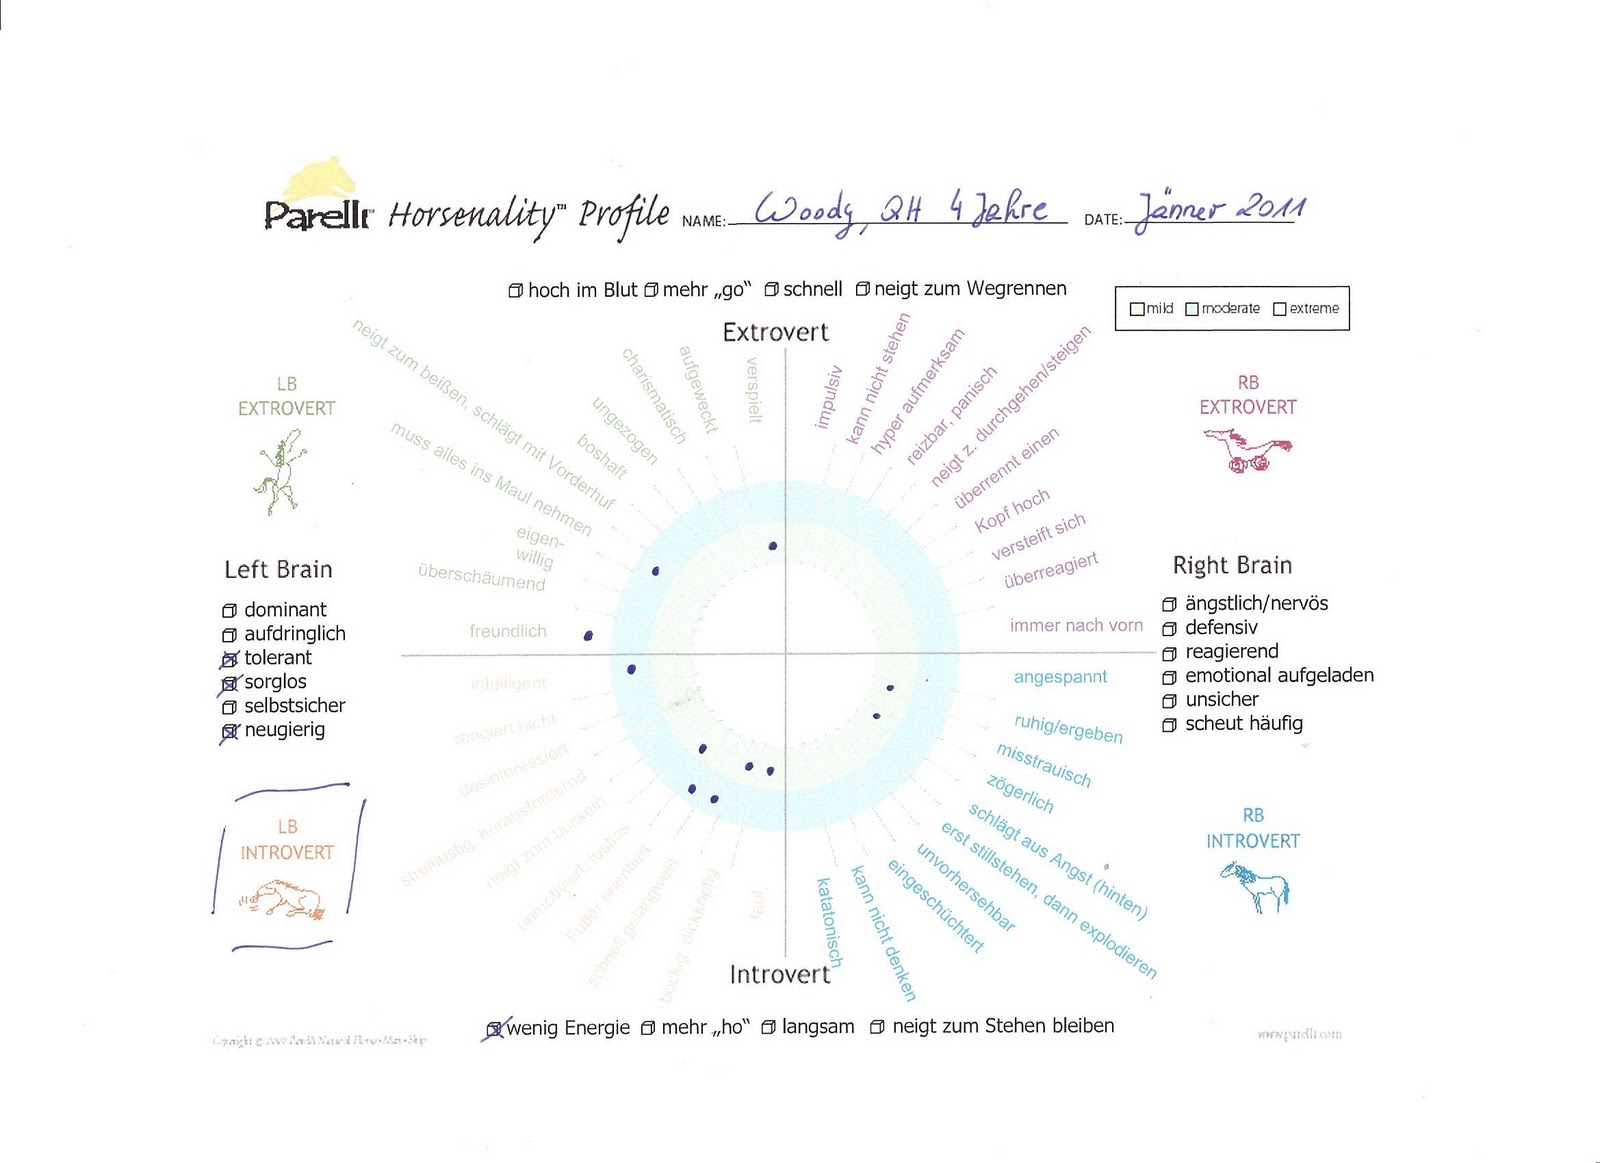 Parelli™ Horsenality™ Profile NAME: Woody, QH 4 Jahre DATE: Jänner 2011
hoch im Blut mehr „go“ schnell neigt zum Wegrennen
mild moderate extreme
Extrovert
LB
EXTROVERT
RB
EXTROVERT
neigt zum beißen, schlägt mit Vorderhuf
muss alles ins Maul nehmen
eigen-
willig
überschäumend
freundlich
boshaft
ungezogen
charismatisch
aufgeweckt
verspielt
impulsiv
kann nicht stehen
hyper aufmerksam
reizbar, panisch
neigt z. durchgehen/steigen
überrennt einen
Kopf hoch
versteift sich
überreagiert
immer nach vorn
Left Brain
dominant
aufdringlich
tolerant
sorglos
selbstsicher
neugierig
Right Brain
ängstlich/nervös
defensiv
reagierend
emotional aufgeladen
unsicher
scheut häufig
intelligent
reagiert nicht
desinteressiert
streitlustig, herausfordernd
neigt zum buckeln
unmotiviert, lustlos
Futter orientiert
schnell gelangweilt
bockig, dickköpfig
faul
angespannt
ruhig/ergeben
misstrauisch
zögerlich
schlägt aus Angst (hinten)
erst stillstehen, dann explodieren
unvorhersehbar
eingeschüchtert
kann nicht denken
katatonisch
LB
INTROVERT
RB
INTROVERT
Introvert
wenig Energie mehr „ho“ langsam neigt zum Stehen bleiben
Copyright © 2007 Parelli Natural Horse•Man•Ship
www.parelli.com